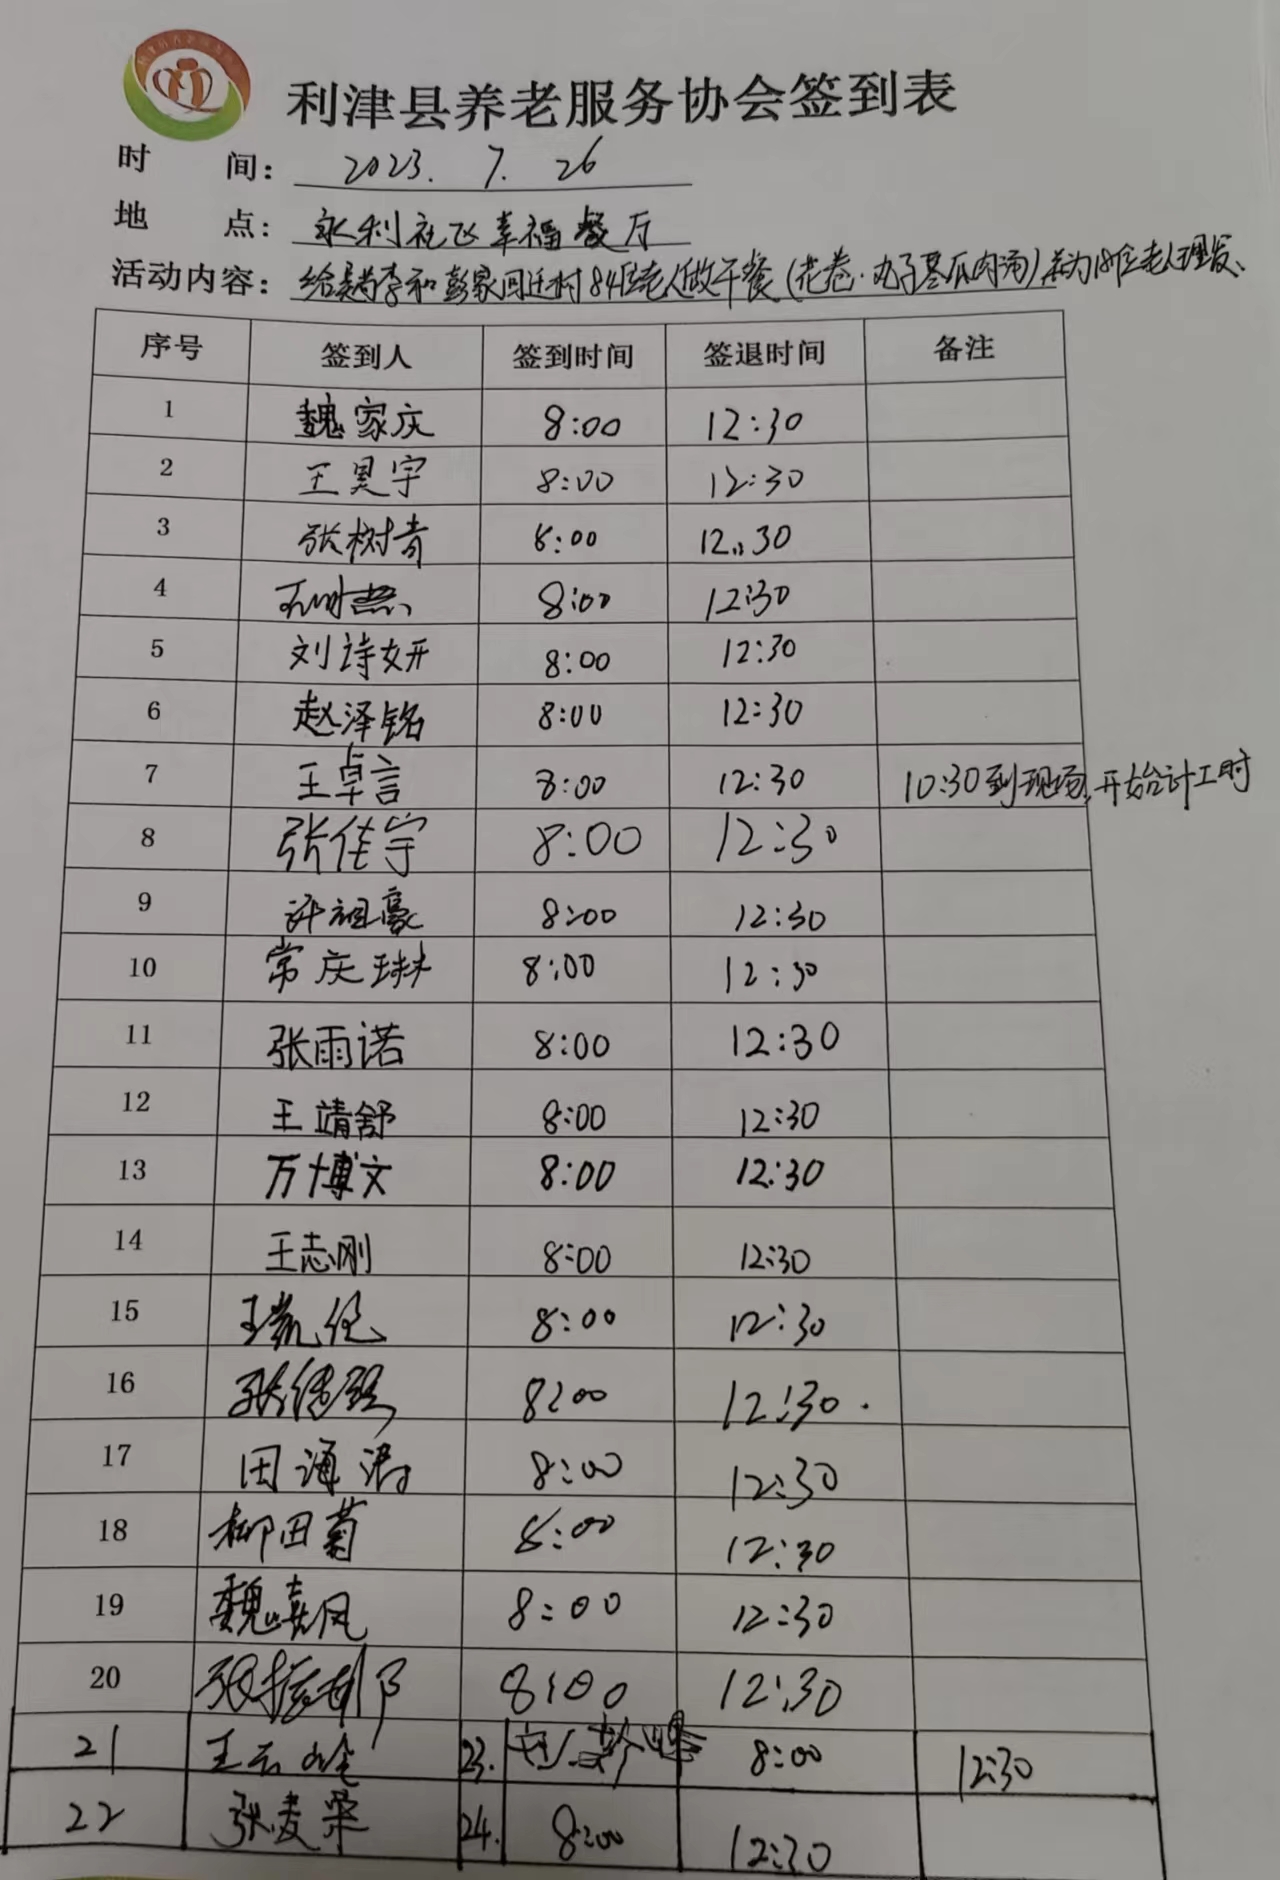 利津县养老服务协会签到表
时 间： 2023. 7. 26
地 点： 永利社区幸福餐厅
活动内容： 给赵李和彭家回迁村84位老人做午餐（花卷·丸子冬瓜肉汤）并为18位老人理发、
序号 签到人 签到时间 签退时间 备注
1 魏家庆 8:00 12:30
2 王昊宇 8:00 12:30
3 张树青 8:00 12:30
4 8:00 12:30
5 刘诗妍 8:00 12:30
6 赵泽铭 8:00 12:30
7 王卓言 8:00 12:30 10:30到现场,开始计工时
8 张佳宇 8:00 12:30
9 许祖豪 8:00 12:30
10 常庆琳 8:00 12:30
11 张雨诺 8:00 12:30
12 王靖舒 8:00 12:30
13 万博文 8:00 12:30
14 王志刚 8:00 12:30
15 王凯 8:00 12:30
16 张 8:00 12:30.
17 田 8:00 12:30
18 柳田菊 8:00 12:30
19 魏嘉凤 8:00 12:30
20 张 8:00 12:30
21 王云 23. 8:00 12:30
22 张麦荣 24. 8:00 12:30